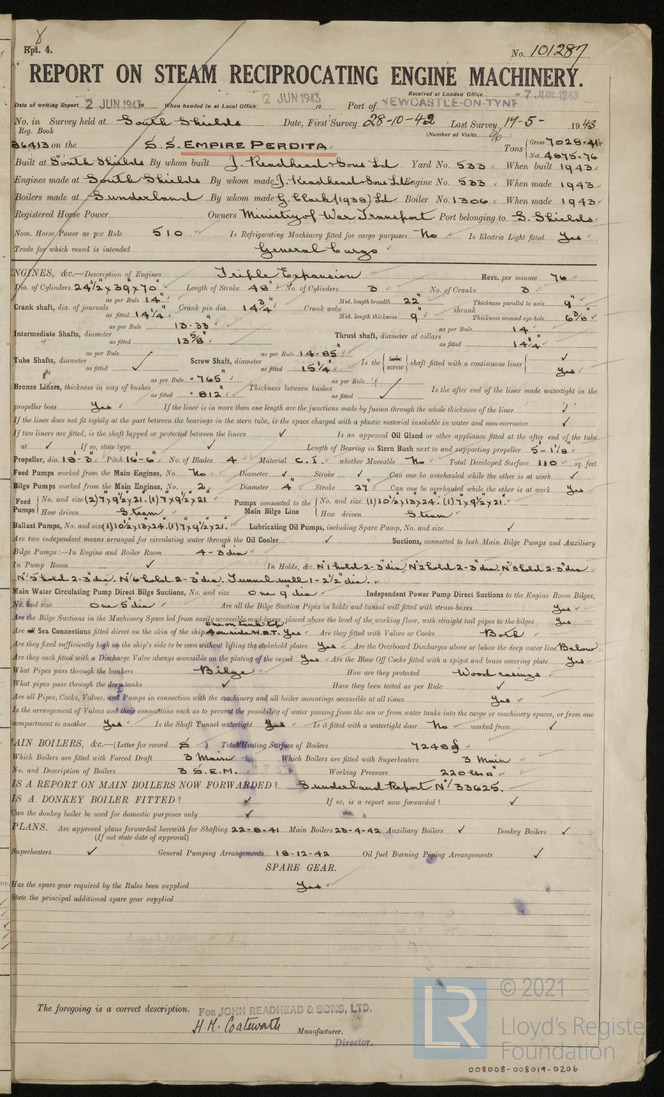 8
Rpt. 4.
No. 101287
REPORT ON STEAM RECIPROCATING ENGINE MACHINERY.
Received at London Office 7 JUN 1943
Date of writing Report 2 JUN 1943 When handed in at Local Office 2 JUN 1943 19 Port of NEWCASTLE-ON-TYNE
No. in Survey held at South Shields Date, First Survey 28-10-42 Last Survey 17-5- 1943
Reg. Book (Number of Visits 96)
86413 on the S.S. EMPIRE PERDITA Tons Gross 7028.41 Net 4875.76
Built at South Shields By whom built J. Readhead & Sons Ld Yard No. 533 When built 1943
Engines made at South Shields By whom made J. Readhead & Sons Ld Engine No. 533 When made 1943
Boilers made at Sunderland By whom made G. Clark (1938) Ld Boiler No. 1306 When made 1943
Registered Horse Power Owners Ministry of War Transport Port belonging to S. Shields
Nom. Horse Power as per Rule 510 Is Refrigerating Machinery fitted for cargo purposes No Is Electric Light fitted Yes
Trade for which vessel is intended General Cargo
ENGINES, &c.—Description of Engines Triple Expansion Revs. per minute 76
Dia. of Cylinders 24½" x 39" x 70" Length of Stroke 48" No. of Cylinders 3 No. of Cranks 3
Crank shaft, dia. of journals as per Rule 14" as fitted 14¼" Crank pin dia. 14¾" Crank webs Mid. length breadth 22" Mid. length thickness 9" shrunk Thickness parallel to axis 9" Thickness around eye-hole 6⅝"
Intermediate Shafts, diameter as per Rule 13.33" as fitted 13⅝" Thrust shaft, diameter at collars as per Rule 14" as fitted 14¼"
Tube Shafts, diameter as per Rule as fitted Screw Shaft, diameter as per Rule 14.85 as fitted 15¼" Is the tube screw shaft fitted with a continuous liner Yes
Bronze Liners, thickness in way of bushes as per Rule .765 as fitted .812 Thickness between bushes as per Rule as fitted Is the after end of the liner made watertight in the
propeller boss Yes If the liner is in more than one length are the junctions made by fusion through the whole thickness of the liner
If the liner does not fit tightly at the part between the bearings in the stern tube, is the space charged with a plastic material insoluble in water and non-corrosive
If two liners are fitted, is the shaft lapped or protected between the liners Is an approved Oil Gland or other appliance fitted at the after end of the tube
at If so, state type Length of Bearing in Stern Bush next to and supporting propeller 5'-1⅛"
Propeller, dia. 18'-3" Pitch 16'-6" No. of Blades 4 Material C.I. whether Moveable No Total Developed Surface 110 sq. feet
Feed Pumps worked from the Main Engines, No. No Diameter Stroke Can one be overhauled while the other is at work
Bilge Pumps worked from the Main Engines, No. 2 Diameter 4" Stroke 27" Can one be overhauled while the other is at work Yes
Feed Pumps No. and size (2) 7"x9½"x21" (1) 7"x9½"x21" How driven Steam Pumps connected to the Main Bilge Line No. and size (1) 10½"x13"x24" (1) 7"x9½"x21" How driven Steam
Ballast Pumps, No. and size (1) 10½"x13"x24" (1) 7"x9½"x21" Lubricating Oil Pumps, including Spare Pump, No. and size
Are two independent means arranged for circulating water through the Oil Cooler Suctions, connected to both Main Bilge Pumps and Auxiliary
Bilge Pumps:—In Engine and Boiler Room 4-3" dia
In Pump Room In Holds, &c. No 1 hold 2-3" dia, No 2 hold 2-3" dia, No 3 hold 2-3" dia
No 5 hold 2-3" dia, No 6 hold 2-3" dia. Tunnel well 1-2½" dia.
Main Water Circulating Pump Direct Bilge Suctions, No. and size One 9" dia Independent Power Pump Direct Suctions to the Engine Room Bilges,
No. and size One 5" dia Are all the Bilge Suction Pipes in holds and tunnel well fitted with strum-boxes Yes
Are the Bilge Suctions in the Machinery Space led from easily accessible mud-boxes, placed above the level of the working floor, with straight tail pipes to the bilges Yes
Are all Sea Connections fitted direct on the skin of the ship one on tank top & on side W.B.T. Yes Are they fitted with Valves or Cocks Both
Are they fixed sufficiently high on the ship's side to be seen without lifting the stokehold plates Yes Are the Overboard Discharges above or below the deep water line Below
Are they each fitted with a Discharge Valve always accessible on the plating of the vessel Yes Are the Blow Off Cocks fitted with a spigot and brass covering plate Yes
What Pipes pass through the bunkers Bilge How are they protected Wood casings
What pipes pass through the deep tanks Have they been tested as per Rule
Are all Pipes, Cocks, Valves, and Pumps in connection with the machinery and all boiler mountings accessible at all times Yes
Is the arrangement of Valves and their connections such as to prevent the possibility of water passing from the sea or from water tanks into the cargo or machinery spaces, or from one
compartment to another Yes Is the Shaft Tunnel watertight Yes Is it fitted with a watertight door No worked from
MAIN BOILERS, &c.—(Letter for record S) Total Heating Surface of Boilers 7248
Which Boilers are fitted with Forced Draft 3 Main Which Boilers are fitted with Superheaters 3 Main
No. and Description of Boilers 3 S.E.M. Working Pressure 220 lbs
IS A REPORT ON MAIN BOILERS NOW FORWARDED? Sunderland Report No 33625.
IS A DONKEY BOILER FITTED? If so, is a report now forwarded?
Can the donkey boiler be used for domestic purposes only
PLANS. Are approved plans forwarded herewith for Shafting 22-8-41 Main Boilers 23-4-42 Auxiliary Boilers Donkey Boilers
(If not state date of approval)
Superheaters General Pumping Arrangements 18-12-42 Oil fuel Burning Piping Arrangements
SPARE GEAR.
Has the spare gear required by the Rules been supplied Yes
State the principal additional spare gear supplied
The foregoing is a correct description.
For JOHN READHEAD & SONS, LTD.
H.M. Coatsworth Manufacturer.
Director.
LR
© 2021
Lloyd's Register
Foundation
008008-008019-0206